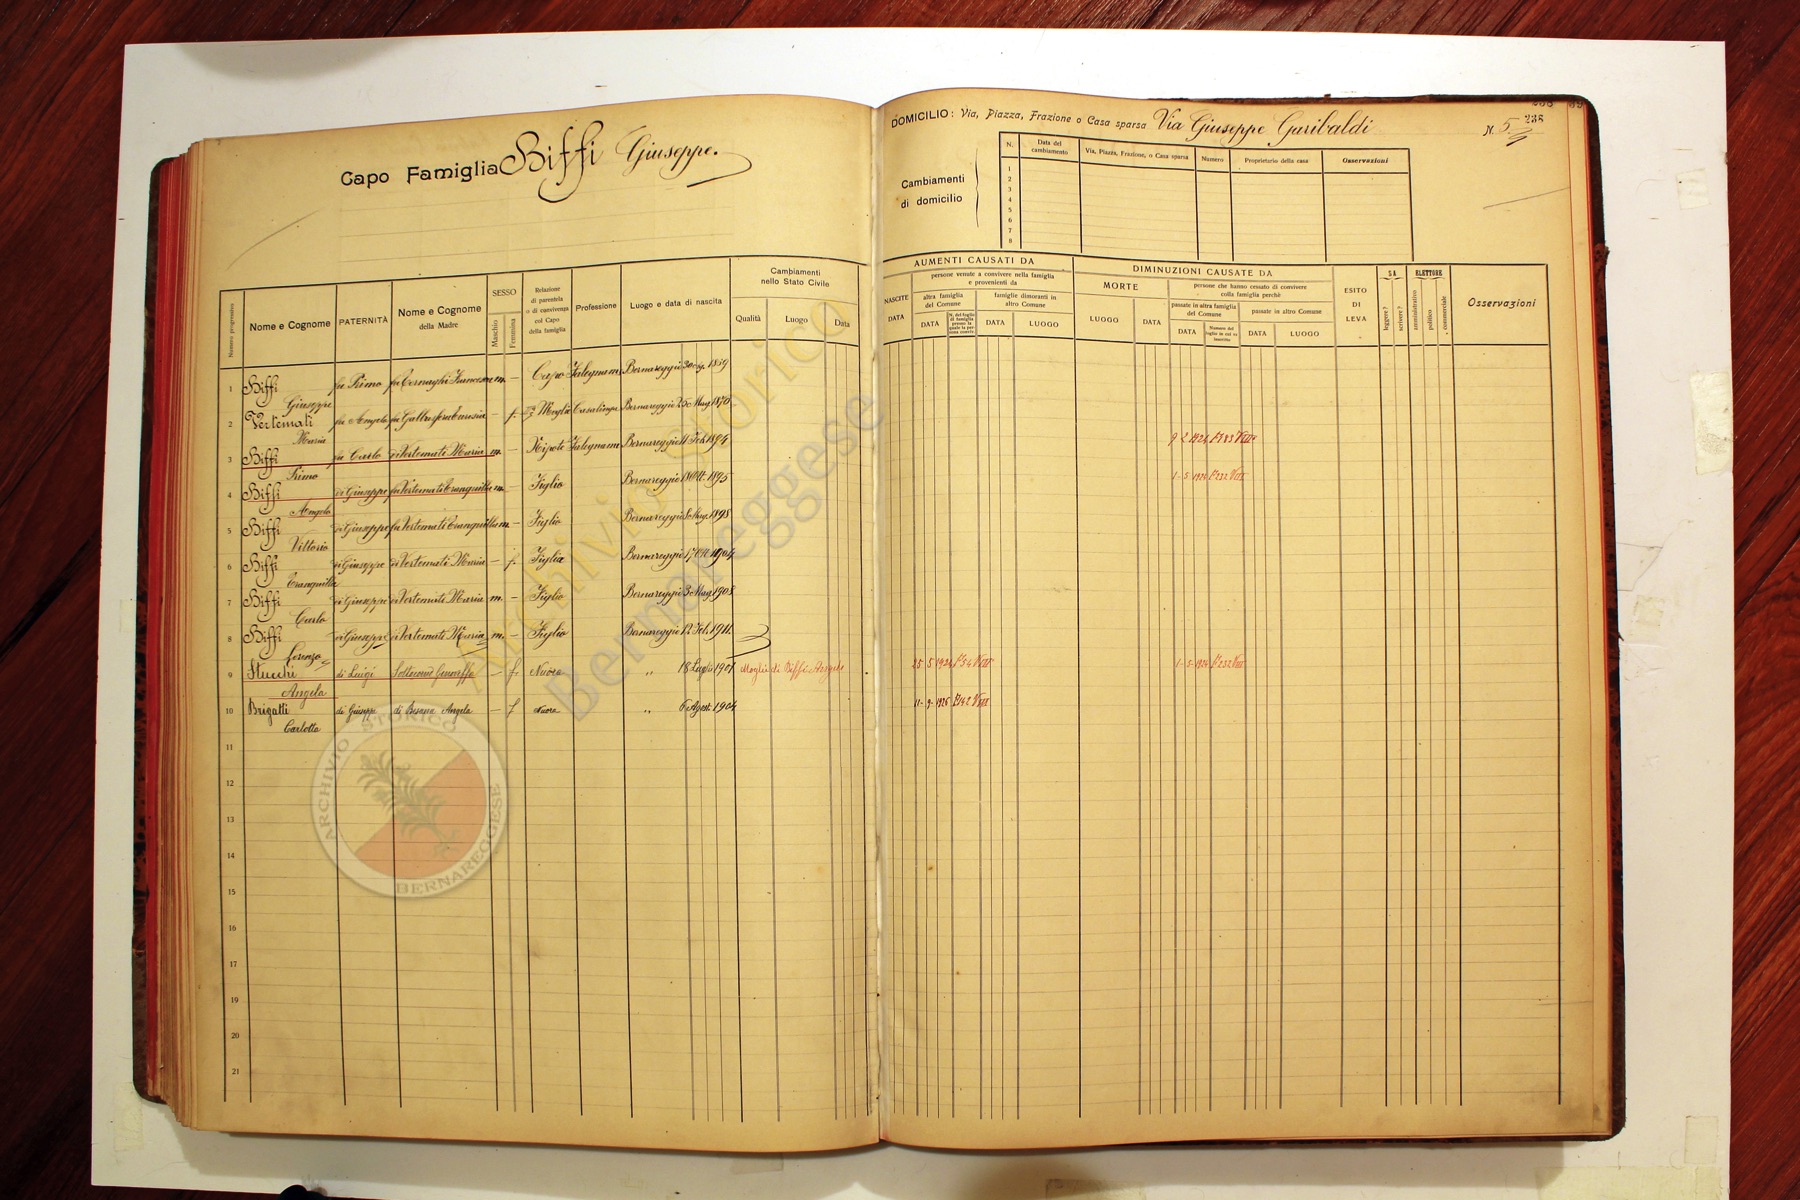 Capo Famiglia Biffi Giuseppe.
DOMICILIO: Via, Piazza, Frazione o Casa sparsa Via Giuseppe Garibaldi
N. 5
238
Cambiamenti
di domicilio
N. Data del cambiamento Via, Piazza, Frazione, o Casa sparsa Numero Proprietario della casa Osservazioni
1
2
3
4
5
6
7
8
Numero progressivo
Nome e Cognome
PATERNITÀ
Nome e Cognome
della Madre
SESSO
Maschio
Femmina
Relazione
di parentela
o di convivenza
col Capo
della famiglia
Professione
Luogo e data di nascita
Cambiamenti
nello Stato Civile
Qualità Luogo Data
AUMENTI CAUSATI DA
NASCITE
DATA
persone venute a convivere nella famiglia
e provenienti da
altra famiglia
del Comune
DATA
N. del foglio
di famiglia
presso la
quale la per
sona convive
famiglie dimoranti in
altro Comune
DATA LUOGO
DIMINUZIONI CAUSATE DA
MORTE
LUOGO DATA
persone che hanno cessato di convivere
colla famiglia perchè
passate in altra famiglia
del Comune
DATA
Numero del
foglio in cui va
inscritto
passate in altro Comune
DATA LUOGO
ESITO
DI
LEVA
SA
leggere?
scrivere?
ELETTORE
amministrativo
politico
commerciale
Osservazioni
1 Biffi Giuseppe fu Primo fu Cornaghi Francesca m. – Capo Falegname Bernareggio 30 1859
2 Vertemati Maria fu Angelo fu – f. Moglie Casalinga Bernareggio 25 Mag. 1870
3 Biffi Primo fu Carlo di Vertemati Maria m. – Nipote Falegname Bernareggio 11 Feb. 1894 9 2 1921
4 Biffi Angelo di Giuseppe fu Vertemati Tranquilla m. – Figlio Bernareggio 18 Ott. 1895 1-5-1924 F° 232 VIII
5 Biffi Vittorio di Giuseppe fu Vertemati Tranquilla m. – Figlio Bernareggio 8 Mag. 1898
6 Biffi Tranquilla di Giuseppe di Vertemati Maria – f. Figlia Bernareggio 17 Ott. 1904
7 Biffi Carlo di Giuseppe di Vertemati Maria m. – Figlio Bernareggio 3 Mag. 1908
8 Biffi Lorenzo di Giuseppe di Vertemati Maria m. – Figlio Bernareggio 12 Feb. 1911.
9 Stucchi Angela di Luigi Genoveffa – f. Nuora " 18 Luglio 1901 Moglie di Biffi Angelo 25 5 1924 F° 54 VIII 1-5-1924 F° 232 VIII
10 Brigatti Carlotta di Giuseppe di Besana Angela – f Nuora " 6 Agost. 1904 11-9-1926 F° 142 VIII
11
12
13
14
15
16
17
18
19
20
21
Archivio Storico
Bernareggese
ARCHIVIO STORICO
BERNAREGGESE